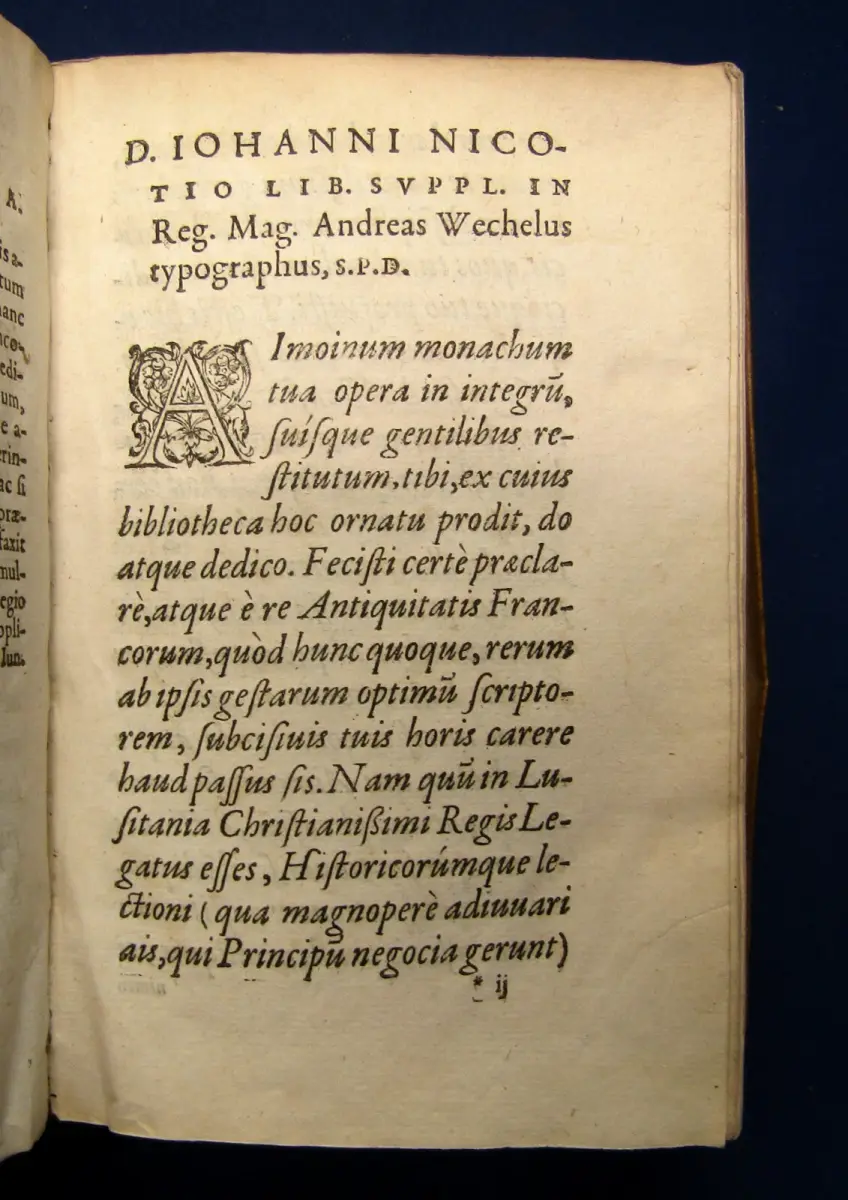 A.
is a-
tum
anc
co-
edi-
um,
e a-
rin-
ac ſi
præ-
faxit
mul-
egio
ppli-
Iun.
D. IOHANNI NICO-
TIO LIB. SVPPL. IN
Reg. Mag. Andreas Wechelus
typographus, S.P.D.
AImoinum monachum
tua opera in integrū,
ſuíſque gentilibus re-
ſtitutum, tibi, ex cuius
bibliotheca hoc ornatu prodit, do
atque dedico. Feciſti certè præcla-
rè, atque è re Antiquitatis Fran-
corum, quòd hunc quoque, rerum
ab ipſis geſtarum optimū ſcripto-
rem, ſubciſiuis tuis horis carere
haud paſſus ſis. Nam quū in Lu-
ſitania Chriſtianiſsimi Regis Le-
gatus eſſes, Hiſtoricorúmque le-
ctioni (qua magnoperè adiuuari
ais, qui Principū negocia gerunt)
* ij